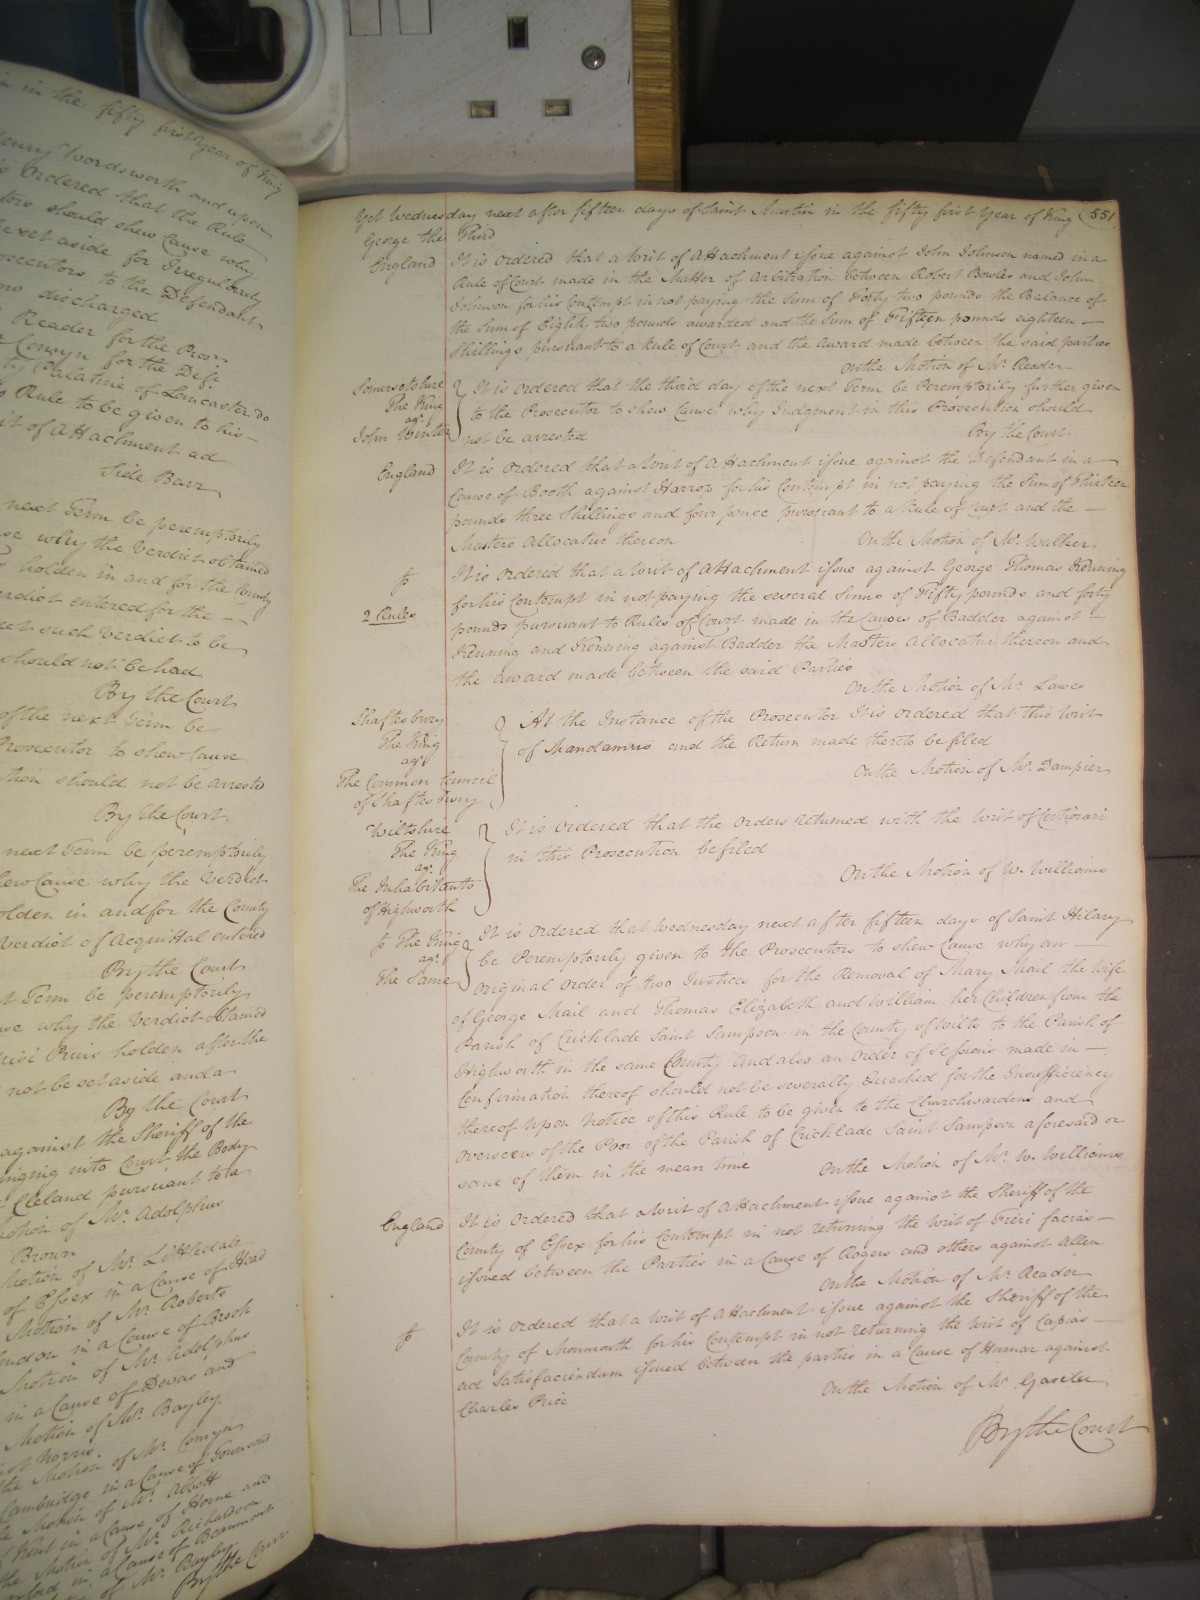 in the fifty first year of King
Henry Wordsworth and upon
is Ordered that the Rule
should shew Cause why
set aside for Irregularity
Prosecutors to the Defendant
discharged
Reader for the Pros
Comyn for the Def
Palatine of Lancaster do
Rule to be given to his
of Attachment ad
Side Barr
next Term be peremptorily
why the Verdict obtained
holden in and for the County
Verdict entered for the
such Verdict to be
should not be had
By the Court
of the next Term be
Prosecutor to shew Cause
should not be arrested
By the Court
next Term be peremptorily
shew Cause why the Verdict
holden in and for the County
Verdict of Acquittal entered
By the Court
Term be peremptorily
why the Verdict obtained
Nisi Prius holden after the
not be set aside and a
By the Court
against the Sheriff of the
bringing into Court the Body
Cleland pursuant to a
Motion of Mr. Adolphus
Brown
Motion of Mr. Littledale
of Essex in a Cause of Head
Motion of Mr. Roberts
London in a Cause of Brook
Motion of Mr. Adolphus
in a Cause of Devas and
Motion of Mr. Bayley
Norris
the Motion of Mr. Comyn
Cambridge in a Cause of Townsend
Motion of Mr. Abbott
Kent in a Cause of Horne and
the Motion of Mr. Richardson
in a Cause of Beaumont
of Mr. Bayley
By the Court
Yet Wednesday next after fifteen days of Saint Martin in the fifty first Year of King 551
George the Third
England It is ordered that a Writ of Attachment issue against John Johnson named in a
Rule of Court made in the Matter of Arbitration between Robert Bowles and John
Johnson for his Contempt in not paying the Sum of Forty two pounds the Balance of
the Sum of Eighty two pounds awarded and the Sum of Fifteen pounds eighteen —
Shillings pursuant to a Rule of Court and the Award made between the said parties
On the Motion of Mr. Reader
Somersetshire
The King
agt.
John Winter
It is ordered that the third day of the next Term be Peremptorily further given
to the Prosecutor to shew Cause why Judgment in this Prosecution should
not be arrested By the Court
England It is ordered that a Writ of Attachment issue against the Defendant in a
Cause of Booth against Harrop for his Contempt in not paying the Sum of Thirteen
pounds three Shillings and four pence pursuant to a Rule of Court and the —
Masters Allocatur thereon On the Motion of Mr. Walker
It is Ordered that a Writ of Attachment issue against George Thomas Kenning
2 Rules
for his Contempt in not paying the several Sums of Fifty pounds and forty
pounds pursuant to Rules of Court made in the Causes of Badder against —
Kenning and Kenning against Badder the Masters Allocatur thereon and
the award made between the said Parties
On the Motion of Mr. Lawes
Shaftesbury
The King
agt.
The Common Council
of Shaftesbury
At the Instance of the Prosecutor It is ordered that this Writ
of Mandamus and the Return made thereto be filed
On the Motion of Mr. Dampier
Wiltshire
The King
agt.
The Inhabitants
of Highworth
It is ordered that the Orders Returned with the Writ of Certiorari
in this Prosecution be filed
On the Motion of W. Williams
The King
agt.
The Same
It is Ordered that Wednesday next after fifteen days of Saint Hilary
be Peremptorily given to the Prosecutors to shew Cause why an —
Original Order of two Justices for the Removal of Mary Mail the Wife
of George Mail and Thomas Elizabeth and William her Children from the
Parish of Cricklade Saint Sampson in the County of Wilts to the Parish of
Highworth in the same County and also an Order of Sessions made in —
Confirmation thereof should not be severally Quashed for the Insufficiency
thereof Upon Notice of this Rule to be given to the Churchwardens and
Overseers of the Poor of the Parish of Cricklade Saint Sampson aforesaid or
some of them in the mean time On the Motion of Mr. W. Williams
England It is Ordered that a Writ of Attachment issue against the Sheriff of the
County of Essex for his Contempt in not returning the Writ of Fieri facias —
issued between the Parties in a Cause of Rogers and others against Allen
On the Motion of Mr. Reader
It is Ordered that a Writ of Attachment issue against the Sheriff of the
County of Monmouth for his Contempt in not returning the Writ of Capias —
ad Satisfaciendum issued between the parties in a Cause of Humar against
Charles Price On the Motion of Mr. Gaselee
By the Court